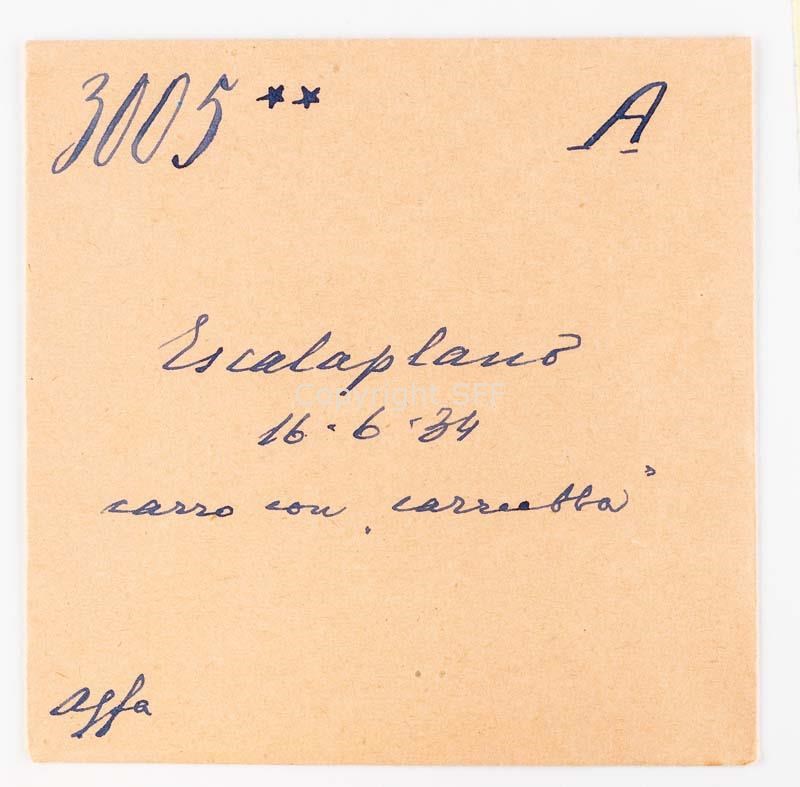 3005 ** A
Escalaplano
Copyright SFF
16·6·34
carro con „carrubba"
agfa